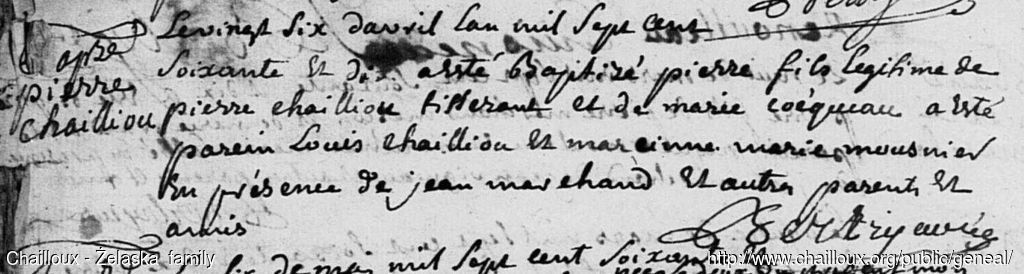 Le vingt six davril Lan mil sept cent
pierre
chailliou
soixante et dix a esté Baptizé pierre fils legitime de
pierre chailliou tisserant et de marie coéqueau a esté
parein Louis chailliou et mareinne marie mousnier
En présence de jean marchand et autres parents et
amis
mil sept cent soixan
Chailloux - Żelaska family
http://www.chailloux.org/public/geneal/